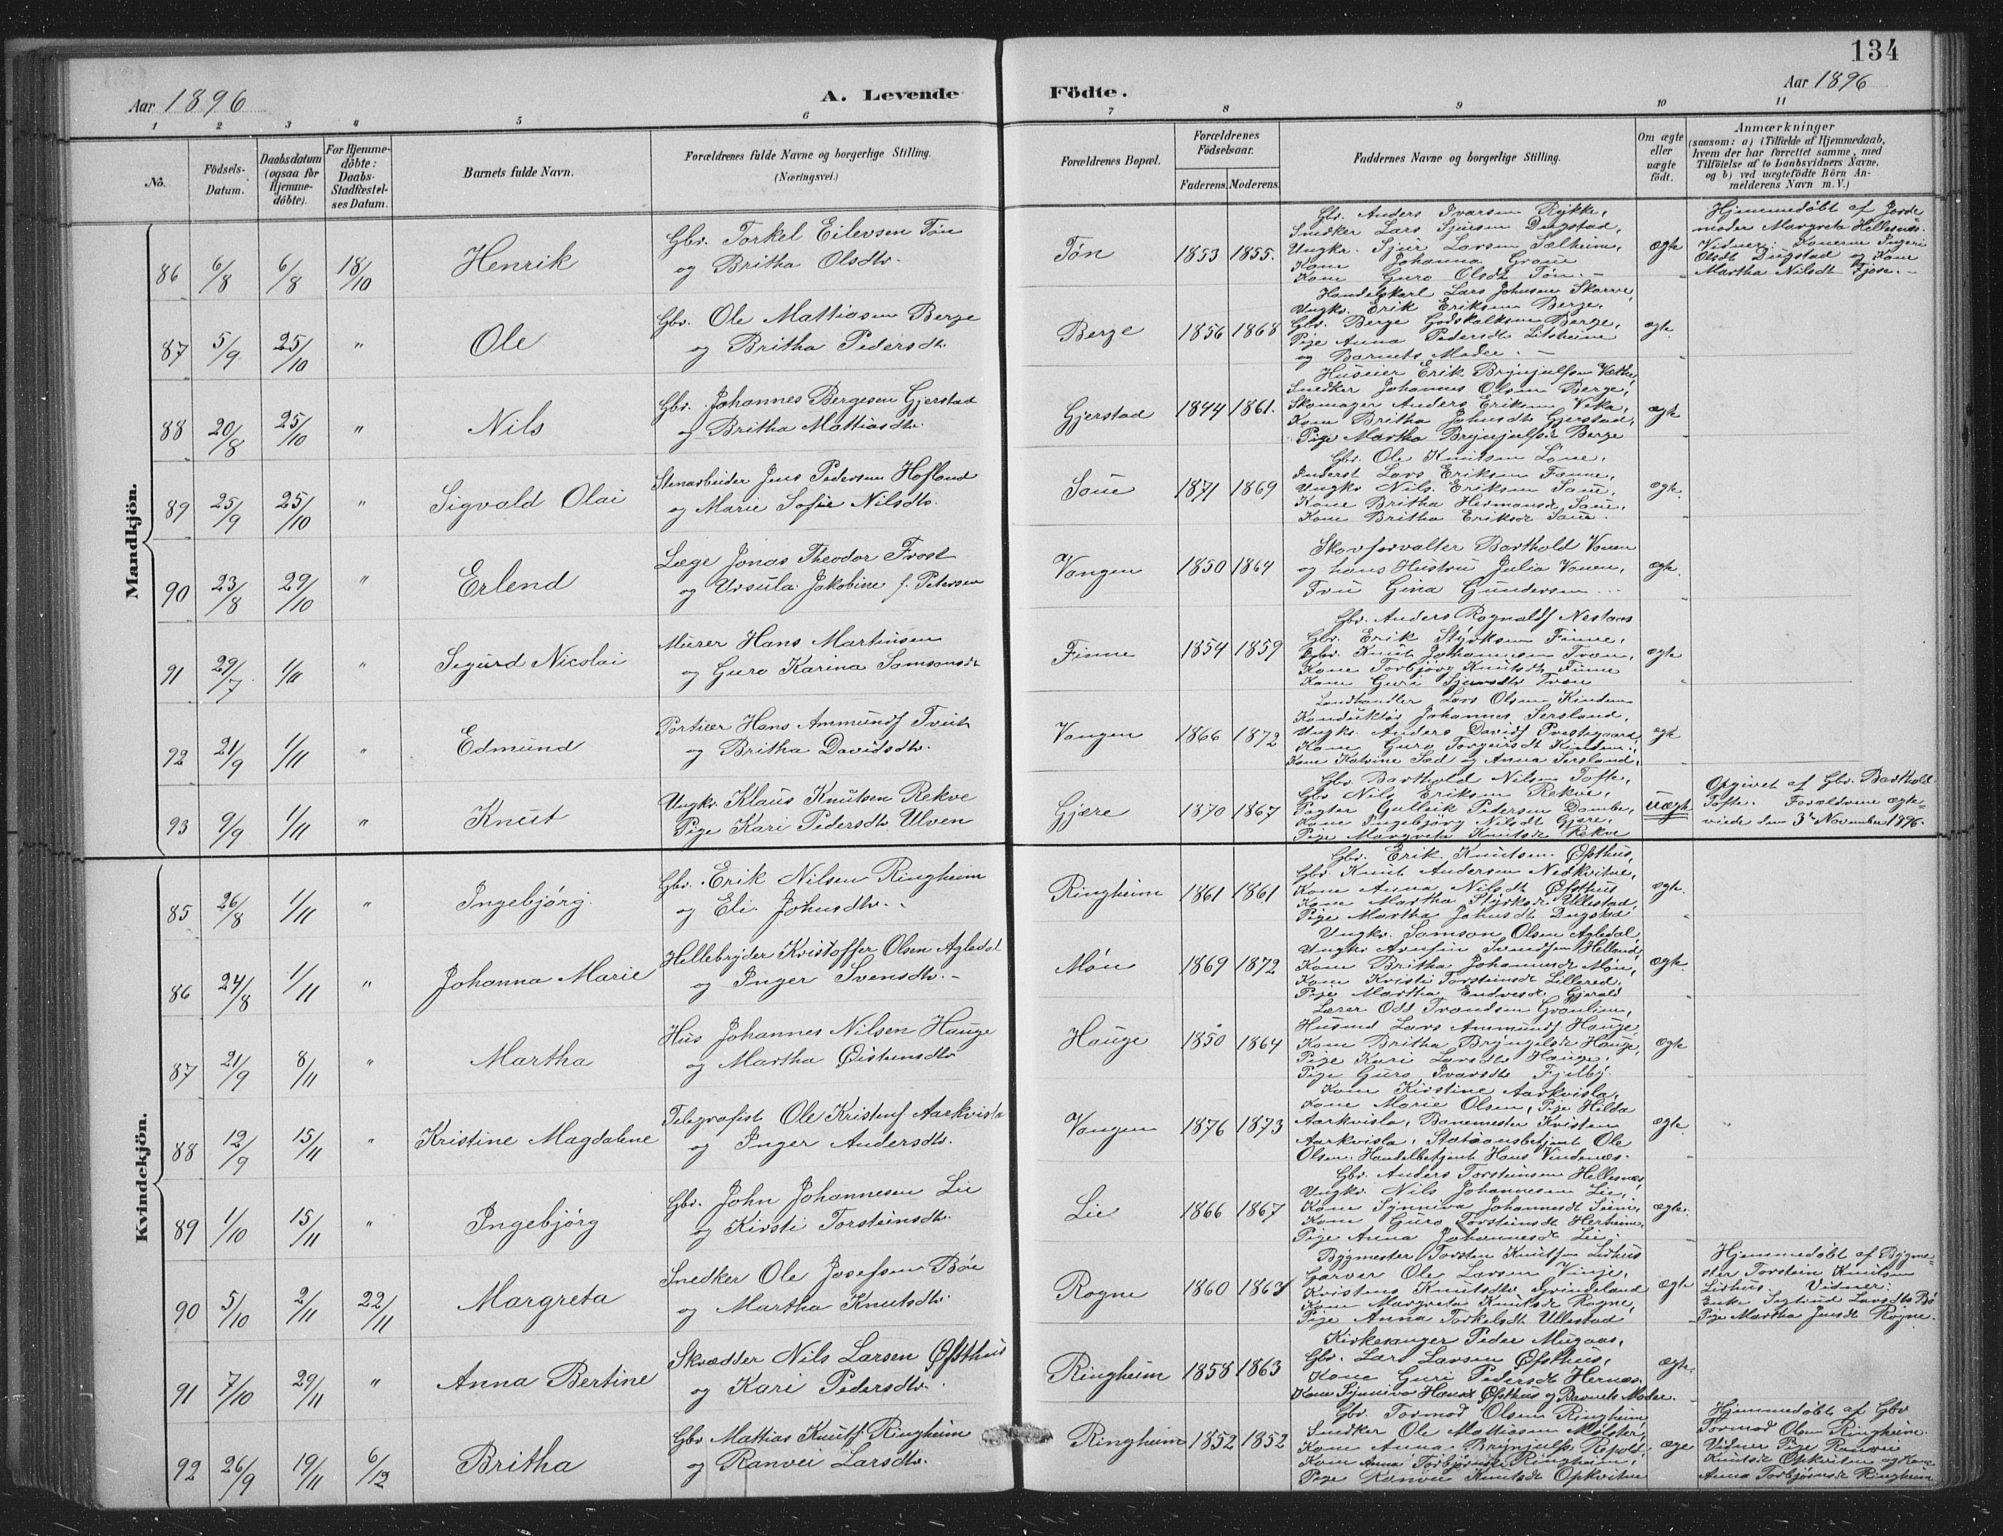 134
Aar 1896
A. Levende Födte.
Aar 1896
1 2 3 4 5 6 7 8 9 10 11
No.
Födsels-Datum.
Daabsdatum (ogsaa for Hjemmedöbte).
For Hjemmedöbte: Daabs-Stadfæstelses Datum.
Barnets fulde Navn.
Forældrenes fulde Navne og borgerlige Stilling.
(Næringsvei.)
Forældrenes Bopæl.
Forældrenes Födselsaar.
Faderens. Moderens.
Faddernes Navne og borgerlige Stilling.
Om ægte eller uægte födt.
Anmærkninger
(saasom: a) i Tilfælde af Hjemmedaab, hvem der har forrettet samme, med Tilföielse af to Daabsvidners Navne, og b) ved uægtefödte Börn Anmelderens Navn m. V.)
Mandkjön.
86 6/8 6/8 18/10 Henrik
Gbr. Torkel Eilevsen Tøn
og Britha Olsdtr.
Tøn 1853 1855.
Gbr. Anders Ivarsen Rykke,
Snedker Lars Sjursen Dugstad,
Ungkr. Sjur Larsen Sælheim,
Kone Johanna Grove
Kone Guro Olsdt Tøn.
ægte
Hjemmedøbt af Jorde-
moder Margreta Hellesnæs.
Vidner: Konerne Ingeri
Olsdt Dugstad og Kone
Martha Nilsdt Fjose.
87 5/9 25/10 " Ole
Gbr. Ole Mattiasen Berge
og Britha Pedersdtr.
Berge 1856 1868
Handelskarl Lars Johnsen Skorve,
Ungkr. Erik Eriksen Berge,
Gbr. Berge Godskalksen Berge,
Pige Anna Pedersdt Litsheim
og Barnets Moder.
ægte
88 20/8 25/10 " Nils
Gbr. Johannes Bergesen Gjerstad
og Britha Mattiasdtr.
Gjerstad 1844 1861.
Huseier Erik Brynjulfsen Væthe,
Snedker Johannes Olsen Berge,
Skomager Anders Eriksen Veka,
Kone Britha Johnsdt Gjerstad,
Pige Martha Brynjulfsdt Berge
ægte
89 25/9 25/10 " Sigvald Olai
Stenarbeider Jens Pedersen Hofland
og Marie Sofie Nilsdtr.
Saue 1871 1869
Gbr. Ole Knutsen Løne,
Inderst Lars Eriksen Fenne,
Ungkr Nils Eriksen Saue,
Kone Britha Hermansdt Saue,
Kone Britha Eriksdt Saue.
ægte
90 23/8 29/10 " Erlend
Læge Jonas Theodor Frost
og Ursula Jakobine f. Petersen
Vangen 1850 1864
Skovforvalter Barthold Vonen
og hans Hustru Julia Vonen,
Fru Gina Gundersen
ægte
91 29/7 1/11 " Sigurd Nicolai
Murer Hans Martinsen
og Guro Karina Samsonsdt
Finne 1854 1859
Gbr. Anders Rognaldf Nestaas
Gbr. Erik Styrksen Finne,
Gbr. Knut Johannesen Tvæn,
Kone Torbjørg Knutsdt Finne
Kone Guri Sjursdtr Tvæn
ægte
92 21/9 1/11 " Edmund
Portier Hans Ammundf Tveit
og Britha Davidsdtr.
Vangen 1866 1872
Landhandler Lars Olsen Kindem
Konduktør Johannes Sersland,
Ungkr. Anders Davidf Prestegaard
Kone Guro Torgersdt Kindem,
Kone Katrine Sæd og Anna Sersland,
ægte
93 9/9 1/11 " Knut
Ungkr. Klaus Knutsen Rekve
Pige Kari Pedersdtr Ulven
Gjære 1870 1867
Gbr Barthold Nilsen Tofte,
Gbr Nils Eriksen Rekve,
Pagter Gulleik Pedersen Dambe,
Kone Ingebjørg Nilsdt Gjære,
Pige Margreta Knutsdt Rekve
uægte
Opgivet af Gbr. Barthold
Tofte. Forældrene ægte-
viede den 3die November 1896.
Kvindekjön.
85 26/8 1/11 " Ingebjørg
Gbr. Erik Nilsen Ringheim
og Eli Johnsdtr.
Ringheim 1861 1861
Gbr. Erik Knutsen Øfsthus,
Gbr Knut Andersen Nedkvitne,
Kone Anna Nilsdt Øfsthus
Kone Martha Styrksdt Ullestad,
Pige Martha Johnsdt Dugstad
ægte
86 24/8 1/11 " Johanna Marie
Hellebryder Kristoffer Olsen Agledal
og Inger Svensdtr.
Møn 1869 1872
Ungkr. Samson Olsen Agledal,
Ungkr Arnfin Svendsen Helland,
Kone Britha Johannesdt Møn,
Kone Kristi Torsteinsdt Lillered,
Pige Martha Endresdt Gjerald
ægte
87 21/9 8/11 " Martha
Hus Johannes Nilsen Hauge
og Martha Øistensdtr
Hauge 1850 1864
Lærer Odd Trondsen Grønlien,
Husmd Lars Ammundf Hauge
Kone Britha Bryngelsdt Hauge,
Pige Kari Larsdt Hauge,
Pige Guro Ivarsdt Fjelby.
ægte
88 12/9 15/11 " Kristine Magdalene
Telegrafist Ole Kristenf Aarkvisla
og Inger Andersdtr.
Vangen 1876 1873
Kone Kirstine Aarkvisla,
Kone Marie Olsen, Pige Hilda
Aarkvisla, Banemester Kristen
Aarkvisla, Stationsbetjent Ole
Olsen. Handelbetjent Hans Vindenæs.
ægte
89 1/10 15/11 " Ingebjørg
Gbr. John Johannesen Lie
og Kirsti Torsteinsdtr.
Lie 1866 1867
Gbr. Anders Torsteinsen Hellesnæs
Ungkr. Nils Johannesen Lie,
Kone Synneva Johannesdt Seim,
Kone Guro Torsteinsdt Herheim,
Pige Anna Johannesdt Lie.
ægte
90 5/10 2/11 22/11 Margreta
Snedker Ole Josefsen Bøe
og Martha Knutsdtr.
Rogne 1860 1863
Bygmester Torsten Knutsen Lirhus
Garver Ole Larsen Vinje,
Kristens Knutsdtr Grindeland
Kone Margreta Knutsdt Rogne,
Pige Anna Torkelsdt Ullestad
ægte
Hjemmedøbt af Bygme-
ster Torstein Knutsen
Lirhus. Vidner:
Enke Sigtrud Larsdt Bø
Pige Martha Jensdt Rogne.
91 7/10 29/11 " Anna Bertine
Skrædder Nils Larsen Øfsthus
og Kari Pedersdtr.
Ringheim 1858 1863
Kirkesanger Peder Mugaas,
Gbr. Lars Larsen Øfsthus,
Kone Guri Pedersdt Hernæs
Kone Synneva Hansdt Øfsthus og Barnets Moder.
ægte
92 26/9 19/11 6/12 Britha
Gbr Mattias Knutf Ringheim
og Ranvei Larsdtr.
Ringheim 1852 1852
Gbr. Tormod Olsen Ringheim
Snedker Ole Mattiasen Mølster,
Kone Anna Brynjulfsdt Repol
Kone Anna Torbjørnsdt Ringheim,
Pige Ranvei Knutsdt Opkvitne
æge
Hjemmedøbt af Gbr
Tormod Olsen Ringheim
Vidner Pige Ranvei
Knutsdt Opkvitne og Kone
Anna Torbjørnsdt Ringheim